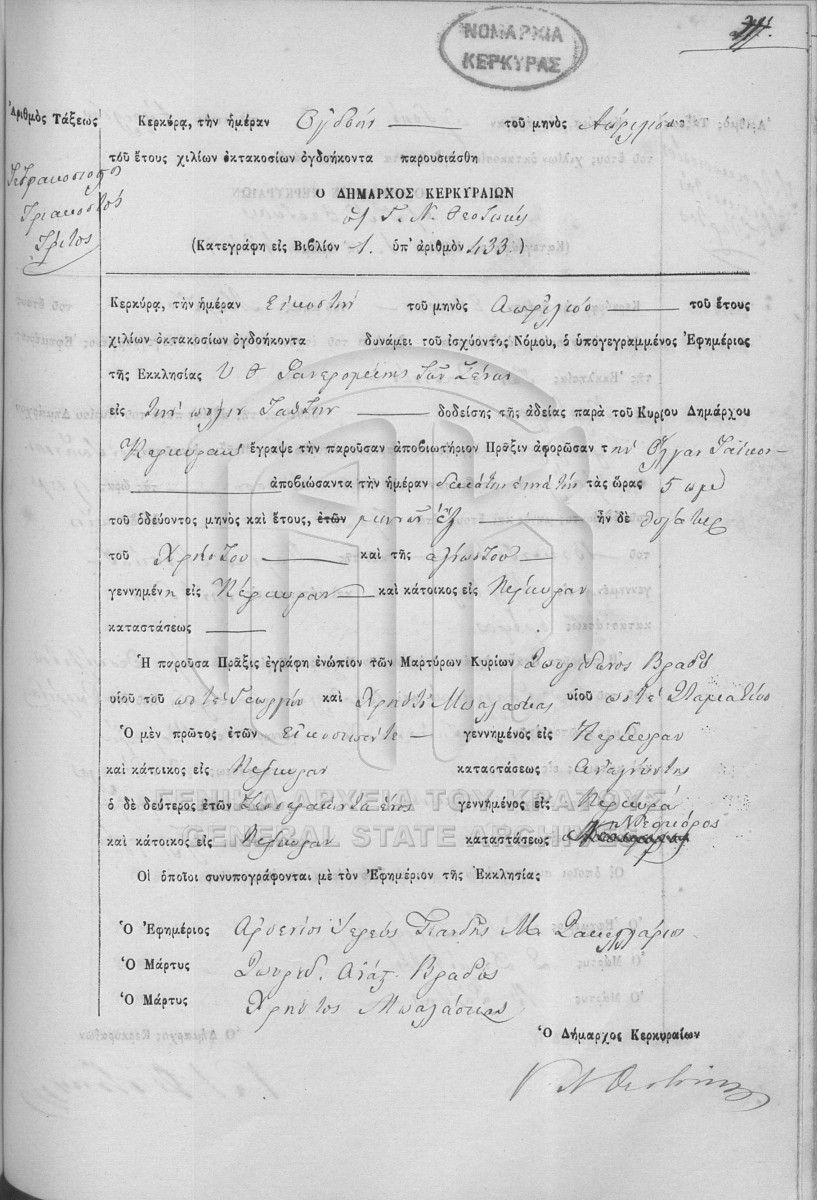 ΝΟΜΑΡΧΙΑ
ΚΕΡΚΥΡΑΣ
Ἀριθμὸς Τάξεως
Τετρακοσιοστὸ
Τριακοστὸς
Τρίτος
Κερκύρᾳ, τὴν ἡμέραν Ὀγδόης τοῦ μηνὸς Ἀπριλίου
τοῦ ἔτους χιλίων ὀκτακοσίων ὀγδοήκοντα παρουσιάσθη
Ο ΔΗΜΑΡΧΟΣ ΚΕΡΚΥΡΑΙΩΝ
Γ. Ν. Θεοτόκης
(Κατεγράφη εἰς Βιβλίον 1. ὑπ' ἀριθμὸν 433.)
Κερκύρᾳ, τὴν ἡμέραν Εἰκοστὴν τοῦ μηνὸς Ἀπριλίου τοῦ ἔτους
χιλίων ὀκτακοσίων ὀγδοήκοντα δυνάμει τοῦ ἰσχύοντος Νόμου, ὁ ὑπογεγραμμένος Ἐφημέριος
τῆς Ἐκκλησίας Υ Θ Φανερομένης τῶν Ξένων
εἰς τὴν πόλιν ταύτην δοδείσης τῆς ἀδείας παρὰ τοῦ Κυρίου Δημάρχου
Κερκύρας ἔγραψε τὴν παροῦσαν ἀποβιωτήριον Πρᾶξιν ἀφορῶσαν τὴν Ὄλγαν
ἀποβιώσαντα τὴν ἡμέραν δεκάτην ἐνάτην τὰς ὥρας 5
τοῦ ὁδεύοντος μηνὸς καὶ ἔτους, ἐτῶν μηνῶν ἓξ ἦν δὲ θυγάτηρ
τοῦ Χρήστου καὶ τῆς ἀγνώστου
γεννημένη εἰς Κέρκυραν καὶ κάτοικος εἰς Κέρκυραν
καταστάσεως
Ἡ παροῦσα Πρᾶξις ἐγράφη ἐνώπιον τῶν Μαρτύρων Κυρίων Σπυρίδωνος Βραδῆ
υἱοῦ τοῦ ποτὲ Γεωργίου καὶ Χρήστου Μπαλάσκας υἱοῦ ποτὲ Σταματίου
Ὁ μὲν πρῶτος ἐτῶν Εἰκοσιπέντε γεννημένος εἰς Κέρκυραν
καὶ κάτοικος εἰς Κέρκυραν καταστάσεως Ἀναγνώστης
ὁ δὲ δεύτερος ἐτῶν γεννημένος εἰς Κέρκυρα
καὶ κάτοικος εἰς Κέρκυραν καταστάσεως Νεωκόρος
Οἱ ὁποῖοι συνυπογράφονται μὲ τὸν Ἐφημέριον τῆς Ἐκκλησίας
Ὁ Ἐφημέριος Ἀρσένιος Ἱερεὺς Σακελλάριος
Ὁ Μάρτυς Σπυριδ. Βραδῆς
Ὁ Μάρτυς Χρήστος Μπαλάσκας
Ὁ Δήμαρχος Κερκυραίων
Γ Ν Θεοτόκης
ΓΕΝΙΚΑ ΑΡΧΕΙΑ ΤΟΥ ΚΡΑΤΟΥΣ
GENERAL STATE ARCHIVES